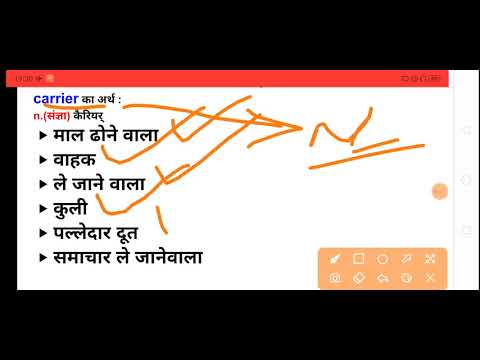 carrier का अर्थ :
n.(संज्ञा) कैरियर्
▶ माल ढोने वाला
▶ वाहक
▶ ले जाने वाला
▶ कुली
▶ पल्लेदार दूत
▶ समाचार ले जानेवाला
N